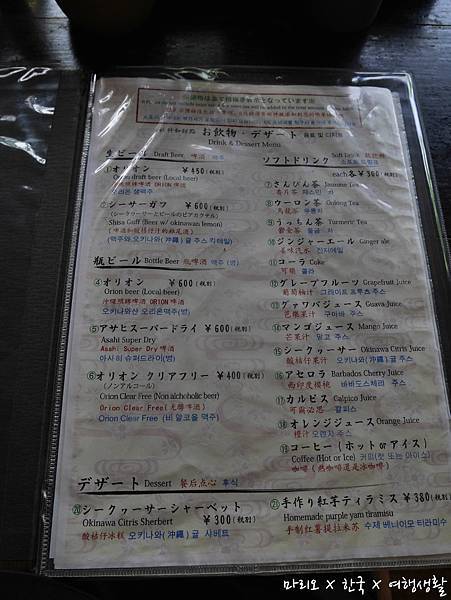 お飲物・デザート
Drink & Dessert Menu
生ビール Draft Beer 啤酒 맥주
①オリオン ¥450(税別)
Orion draft beer (Local beer)
오리온 생맥주
②シーサーガフ ¥600(税別)
(シークヮーサーとビールのビアカクテル)
Shisa Guff (Beer w/ okinawan lemon)
(맥주와 오키나와(沖縄) 귤 주스 칵테일)
瓶ビール Bottle Beer 瓶啤酒 맥주 (병)
④オリオン ¥600(税別)
Orion beer (Local beer)
오키나와산 오리온맥주(병)
⑤アサヒスーパードライ ¥600(税別)
Asahi Super Dry
Asahi Super Dry 啤酒
아사히 슈퍼드라이(병)
⑥オリオン クリアフリー ¥400(税別)
(ノンアルコール)
Orion Clear Free (Non alchoholic beer)
Orion Clear Free(无醇啤酒)
Orion Clear Free (비 알코올 맥주)
ソフトドリンク Soft Drink
each各¥300(税別)
⑦さんぴん茶 Jasmine Tea
香片茶 재스민 티
⑧ウーロン茶 Oolong Tea
乌龙茶 우롱차
⑨うっちん茶 Turmeric Tea
郁金茶 울금 차
⑩ジンジャーエール Ginger ale
姜味汽水 진저에일
⑪コーラ Coke
可乐 콜라
⑫グレープフルーツ Grapefruit Juice
葡萄柚汁 그레이프 푸르츠 주스
⑬グァバジュース Guava Juice
芭乐果汁 구아바 주스
⑭マンゴジュース Mango Juice
芒果汁 망고 주스
⑮シークヮーサー Okinawa Citris Juice
酸桔仔果汁 오키나와(沖縄)귤 주스
⑯アセロラ Barbados Cherry Juice
西印度樱桃 바바도스체리 주스
⑰カルピス Calpico Juice
可尔必思 칼피스
⑱オレンジジュース Orange Juice
橙汁 오렌지 주스
⑲コーヒー(ホット or アイス)
Coffee (Hot or Ice) 커피(핫 또는 아이스)
咖啡(热咖啡或是冰咖啡)
デザート Dessert 餐后点心 후식
⑳シークヮーサーシャーベット
Okinawa Citris Sherbert ¥300(税別)
酸桔仔冰糕 오키나와(沖縄)귤 샤베트
㉑手作り紅芋ティラミス ¥380(税別)
Homemade purple yam tiramisu
手制红薯提拉米苏 수제 베니이모 티라미수
마리오 X 한국 X 여행생활